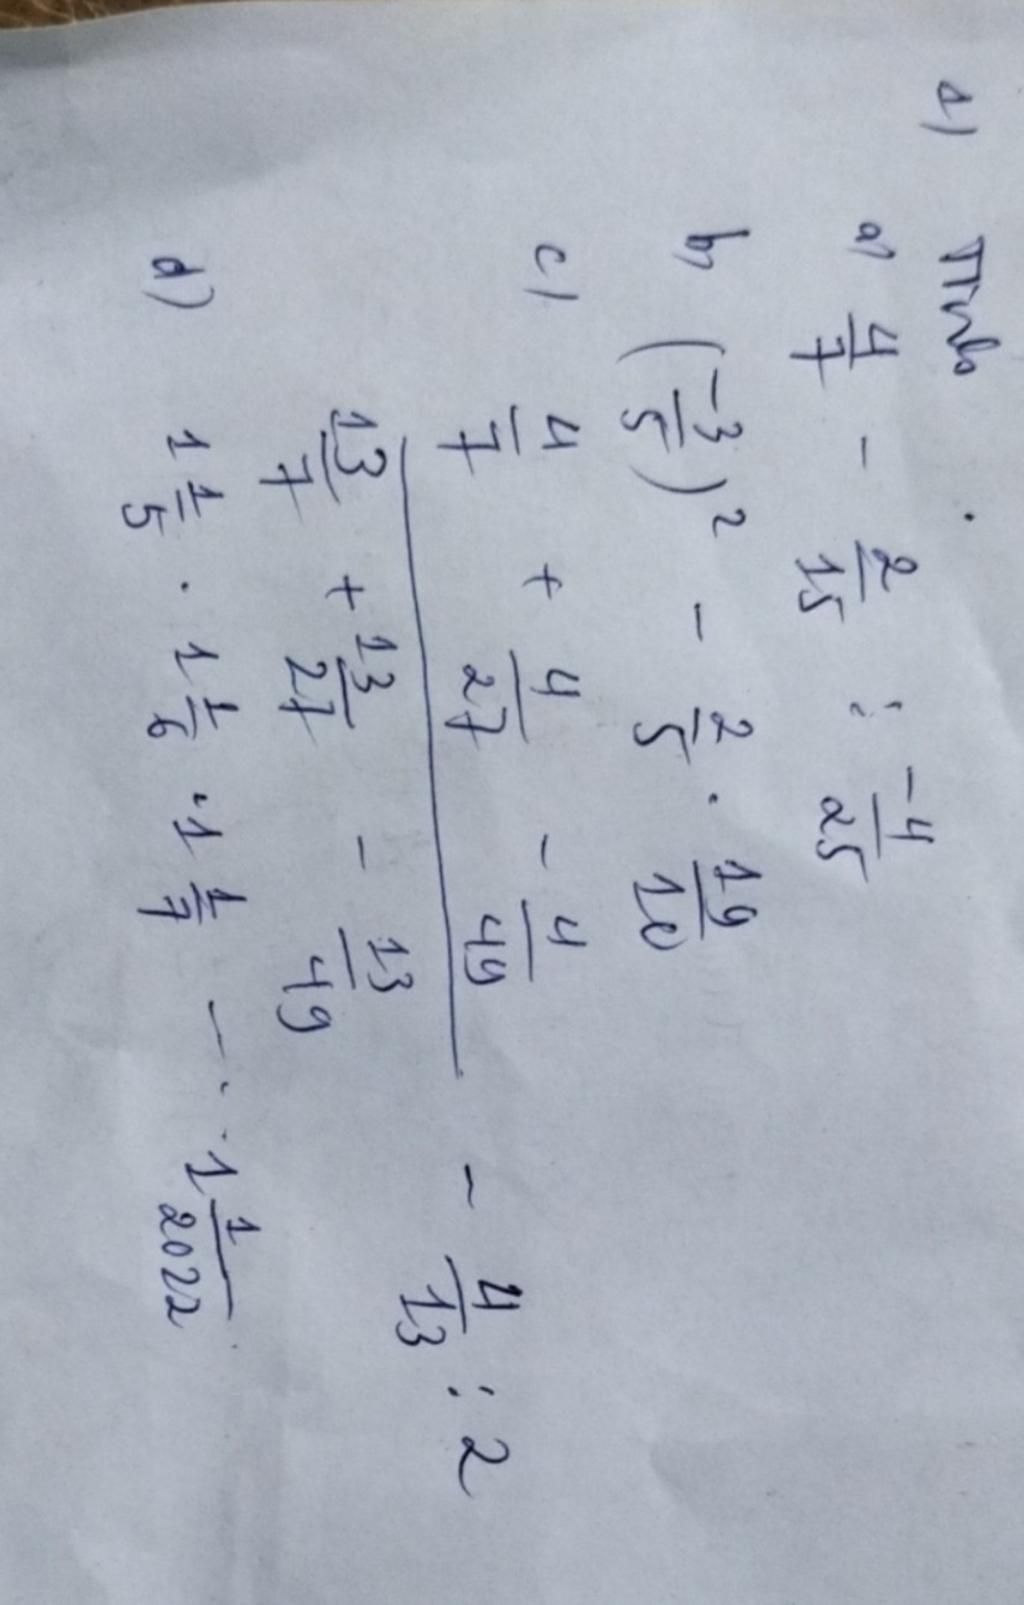 1) Tính
a) 4/7 - 2/15 : -4/25
b) (-3/5)² - 2/5 . 19/10
c) (4/7 + 4/27 - 4/49) / (13/7 + 13/27 - 13/49) - 4/13 : 2
d) 1 1/5 . 1 1/6 . 1 1/7 ... 1 1/2022